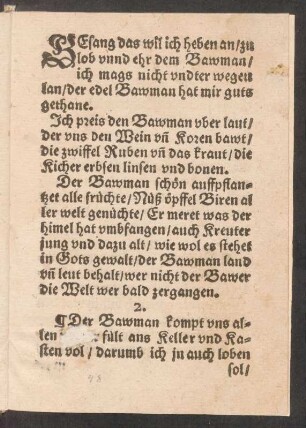 GEsang das wil ich heben an/zu
lob vnnd ehr dem Bawman/
ich mags nicht vndter wegen
lan/der edel Bawman hat mir guts
gethane.
Ich preis den Bawman vber laut/
der vns den Wein vñ Koren bawt/
die zwiffel Ruben vñ das kraut/die
Kicher erbsen linsen vnd bonen.
Der Bawman schön auffpflan-
tzet alle früchte/Nüß öpffel Biren al
ler welt genüchte/Er meret was der
himel hat vmbfangen/auch Kreuter
jung vnd dazu alt/wie wol es stehet
in Gots gewalt/der Bawman land
vñ leut behalt/wer nicht der Bawer
die Welt wer bald zergangen.
2.
¶Der Bawman kompt vns al-
len fült ans Keller vnd Ka-
sten vol/darumb ich jn auch loben
sol/